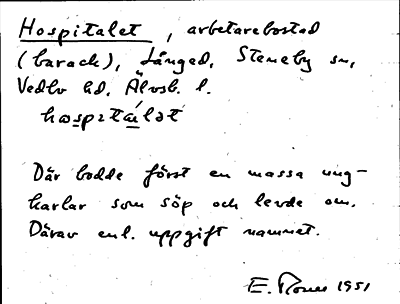 Hospitalet, arbetarebostad
(barack), Långed, Steneby sn,
Vedbo hd, Älvsb. l.
hospitálǝt
Där bodde först en massa ung-
karlar som söp och levde om.
Därav enl. uppgift namnet.
E. 1951